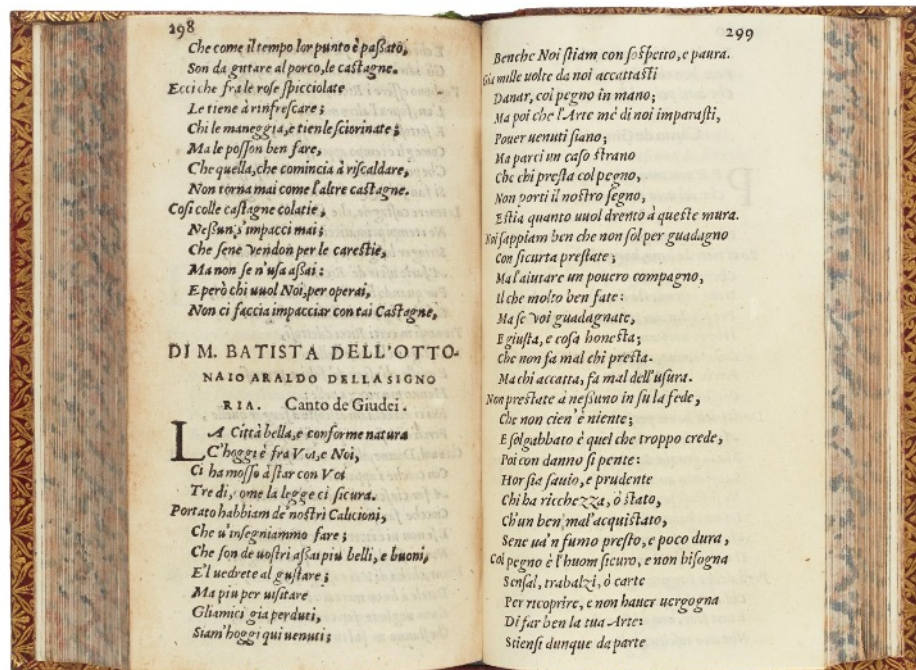 298
Che come il tempo lor punto è paßato,
Son da gittare al porco, le castagne.
Ecci che fra le rose spicciolate
Le tiene à rinfrescare;
Chi le maneggia, e tienle sciorinate;
Ma le posson ben fare,
Che quella, che comincia à riscaldare,
Non torna mai come l'altre castagne.
Cosi colle castagne colatie,
Neßun, s'impacci mai;
Che sene vendon per le carestie,
Ma non se n'usa aßai:
E però chi vuol Noi, per operai,
Non ci faccia impacciar con tai Castagne,
DI M. BATISTA DELL'OTTO-
NAIO ARALDO DELLA SIGNO
RIA. Canto de Giudei.
LA Città bella, e conforme natura
C'hoggi è fra Voi, e Noi,
Ci ha mosso à star con Voi
Tre di, come la legge ci sicura.
Portato habbiam de' nostri Calicioni,
Che u'insegniammo fare;
Che son de uostri aßai piu belli, e buoni,
E'l uedrete al gustare;
Ma piu per uisitare
Gliamici gia perduti,
Siam'hoggi qui uenuti;
299
Benche Noi stiam con sospetto, e paura.
Gia mille uolte da noi accattasti
Danar, col pegno in mano;
Ma poi che l'Arte me di noi imparasti,
Pouer uenuti siano;
Ma parci un caso strano
Che chi presta col pegno,
Non porti il nostro segno,
E stia quanto uuol drento à queste mura.
Noi sappiam ben che non sol per guadagno
Con sicurta prestate;
Ma l'aiutare un pouero compagno,
Il che molto ben fate:
Ma se voi guadagnate,
E giusta, e cosa honesta;
Che non fa mal chi presta.
Ma chi accatta, fa mal dell'usura.
Non prestate à neßuno in su la fede,
Che non cien'è niente;
E sol gabbato è quel che troppo crede,
Poi con danno si pente:
Hor sia sauio, e prudente
Chi ha ricchezza, ò stato,
Ch'un ben, mal'acquistato,
Sene ua'n fumo presto, e poco dura,
Col pegno è l'huom sicuro, e non bisogna
Sensal, trabalzi, ò carte
Per ricoprire, e non hauer uergogna
Di far ben la tua Arte:
Stiensi dunque da parte